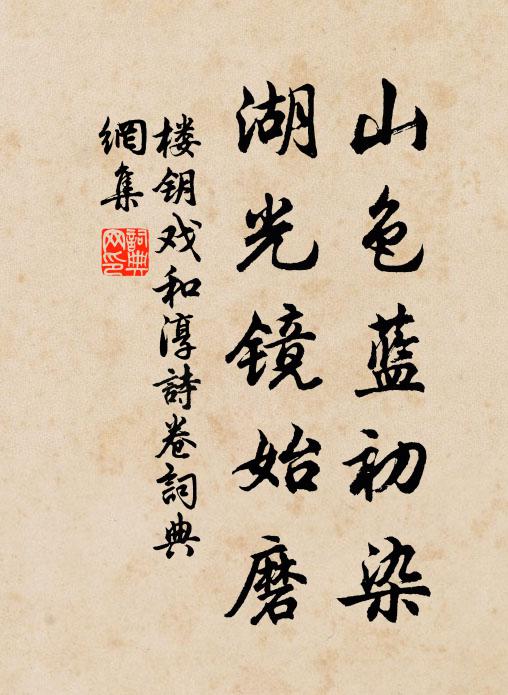 山色蓝初染
湖光镜始磨
楼钥戏和淳詩卷詞典
網集
詞典
网印